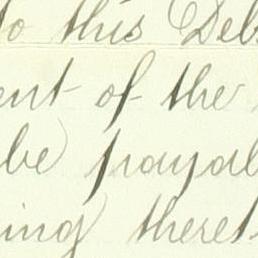 to this Deb
ent of the
be payab
ing theret